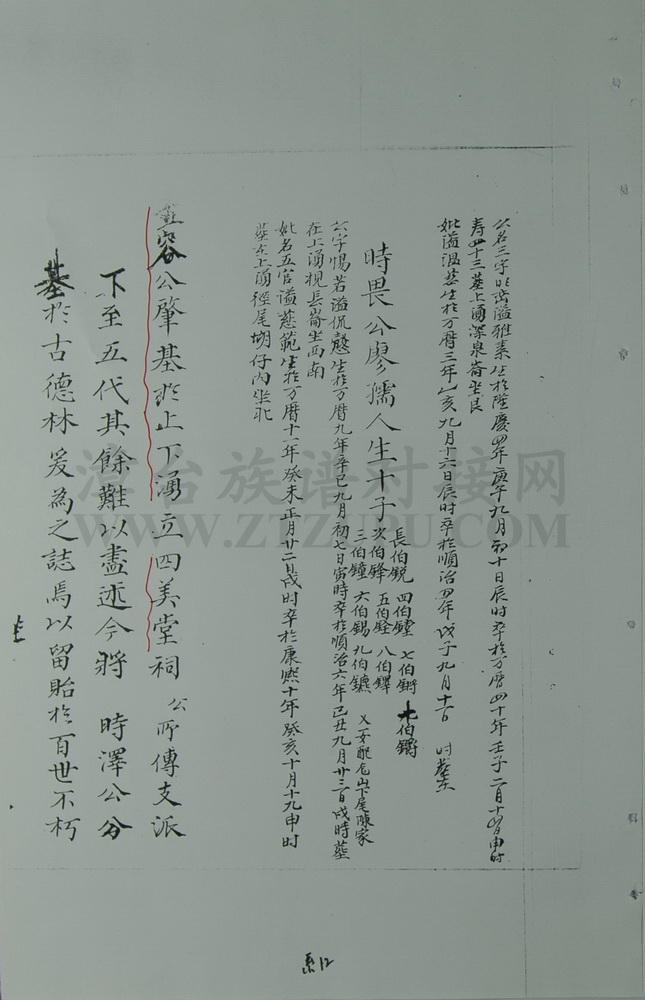 公名三字 謚雅素 生於隆慶四年庚午九月初十日辰时卒於万曆四十年壬子二月十 日申时
寿四十三墓上涌深泉崙坐艮
妣謚温慈生於万曆三年乙亥九月十六日辰时卒於順治四年戊子九月十 日 时葬
時畏公廖孺人生十子
長伯銳 四伯鏜 七伯鏘 十伯鐊
次伯鋒 五伯銓 八伯鐸
三伯鐘 六伯錫 九伯鑣 又一女配 山下尾陳家
公字惕若謚侃慤生於万曆九年辛巳九月初七日寅時卒於順治六年己丑九月廿三日戌時墓
在上涌枧長崙坐西南
妣名五官謚慈範生於万曆十一年癸未正月廿二日戌时卒於康熙十年癸亥十月十九申时
葬 上涌徑尾坳仔内坐北
容公肇基於上下湧立四美堂祠 公所傳支派
下至五代其餘難以盡述今將 時澤公分
基於古德林爰為之誌焉以留貽於百世不朽
系12
漳台族谱对接网
WWW.ZTZUPU.COM